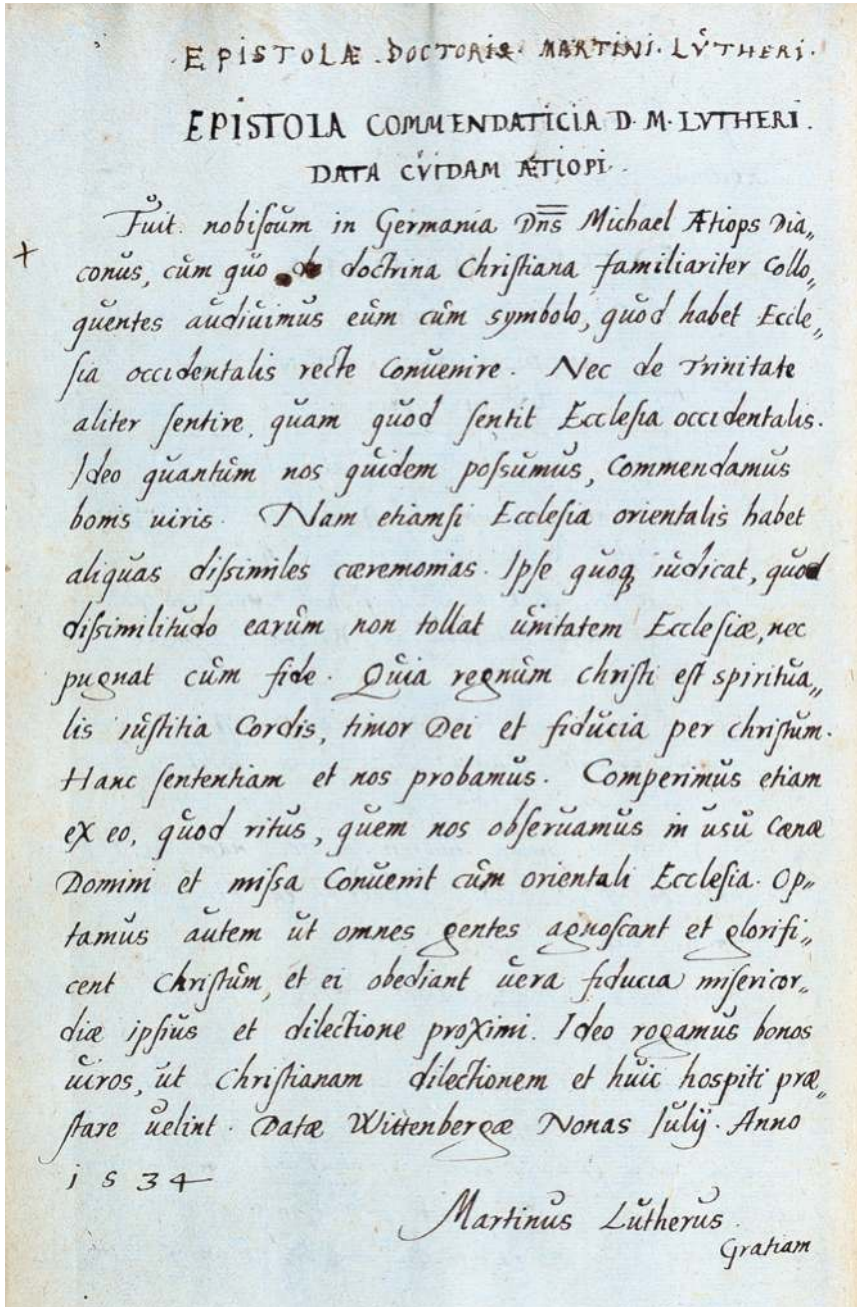 EPISTOLÆ DOCTORIS. MARTINI. LVTHERI.
EPISTOLA COMMENDATICIA D. M. LVTHERI.
DATA CVIDAM ÆTIOPI.
Fuit nobiscum in Germania Dns Michael Ætiops Dia„
conus, cum quo de doctrina Christiana familiariter Collo„
quentes audiuimus eum cum symbolo, quod habet Eccle„
sia occidentalis recte Conuenire. Nec de Trinitate
aliter sentire, quam quod sentit Ecclesia occidentalis.
Ideo quantum nos quidem possumus, Commendamus
bonis uiris. Nam etiamsi Ecclesia orientalis habet
aliquas dissimiles cæremonias. Ipse quoq iudicat, quod
dissimilitudo earum non tollat unitatem Ecclesiæ, nec
pugnat cum fide. Quia regnum christi est spiritua„
lis iustitia Cordis, timor Dei et fiducia per christum.
Hanc sententiam et nos probamus. Comperimus etiam
ex eo, quod ritus, quem nos obseruamus in usu Cænæ
Domini et missa Conuenit cum orientali Ecclesia. Op„
tamus autem ut omnes gentes agnoscant et glorifi„
cent Christum, et ei obediant uera fiducia misericor„
diæ ipsius et dilectione proximi. Ideo rogamus bonos
uiros, ut Christianam dilectionem et huic hospiti præ„
stare uelint. Datæ Wittenbergæ Nonas Iulij. Anno
1534
Martinus Lutherus.
Gratiam